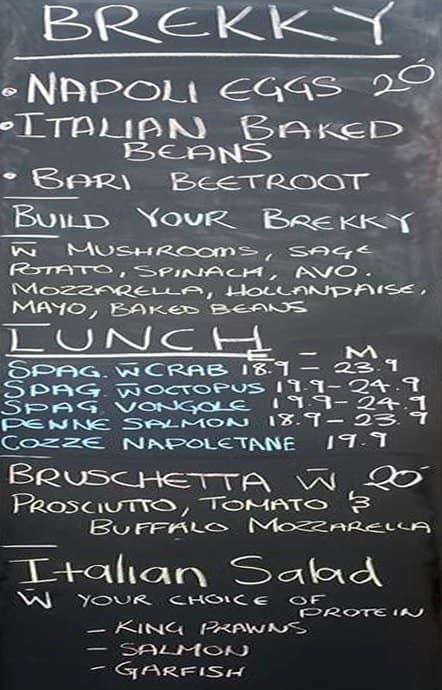 BREKKY
• NAPOLI EGGS 20
• ITALIAN BAKED
BEANS
• BARI BEETROOT
BUILD YOUR BREKKY
W MUSHROOMS, SAGE
POTATO, SPINACH, AVO.
MOZZARELLA, HOLLANDAISE,
MAYO, BAKED BEANS
LUNCH
E - M
SPAG. W CRAB 18.9 - 23.9
SPAG. W OCTOPUS 19.9 - 24.9
SPAG. VONGOLE 19.9 - 24.9
PENNE SALMON 18.9 - 23.9
COZZE NAPOLETANE 19.9
BRUSCHETTA W 20
PROSCIUTTO, TOMATO &
BUFFALO MOZZARELLA
Italian Salad
W YOUR CHOICE OF
PROTEIN
- KING PRAWNS
- SALMON
- GARFISH